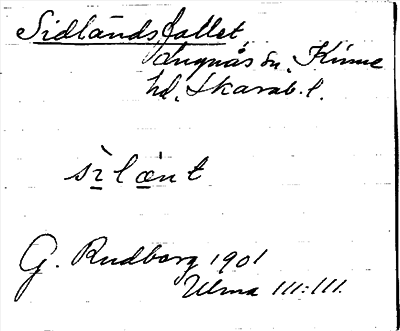 Sidlandsfallet,
Lugnås sn, Kinne
hd, Skarab. l.
sìlænt
G. Rudberg 1901
Ulma 111:111.